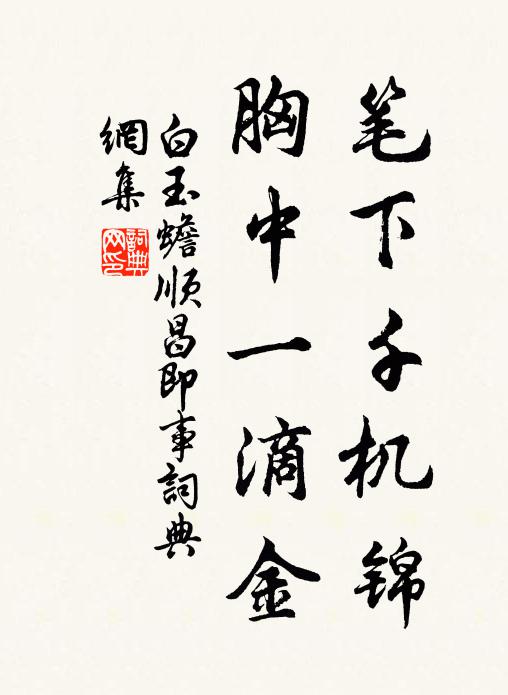 笔下千机锦
胸中一滴金
白玉蟾顺昌即事詞典
網集
詞典网印